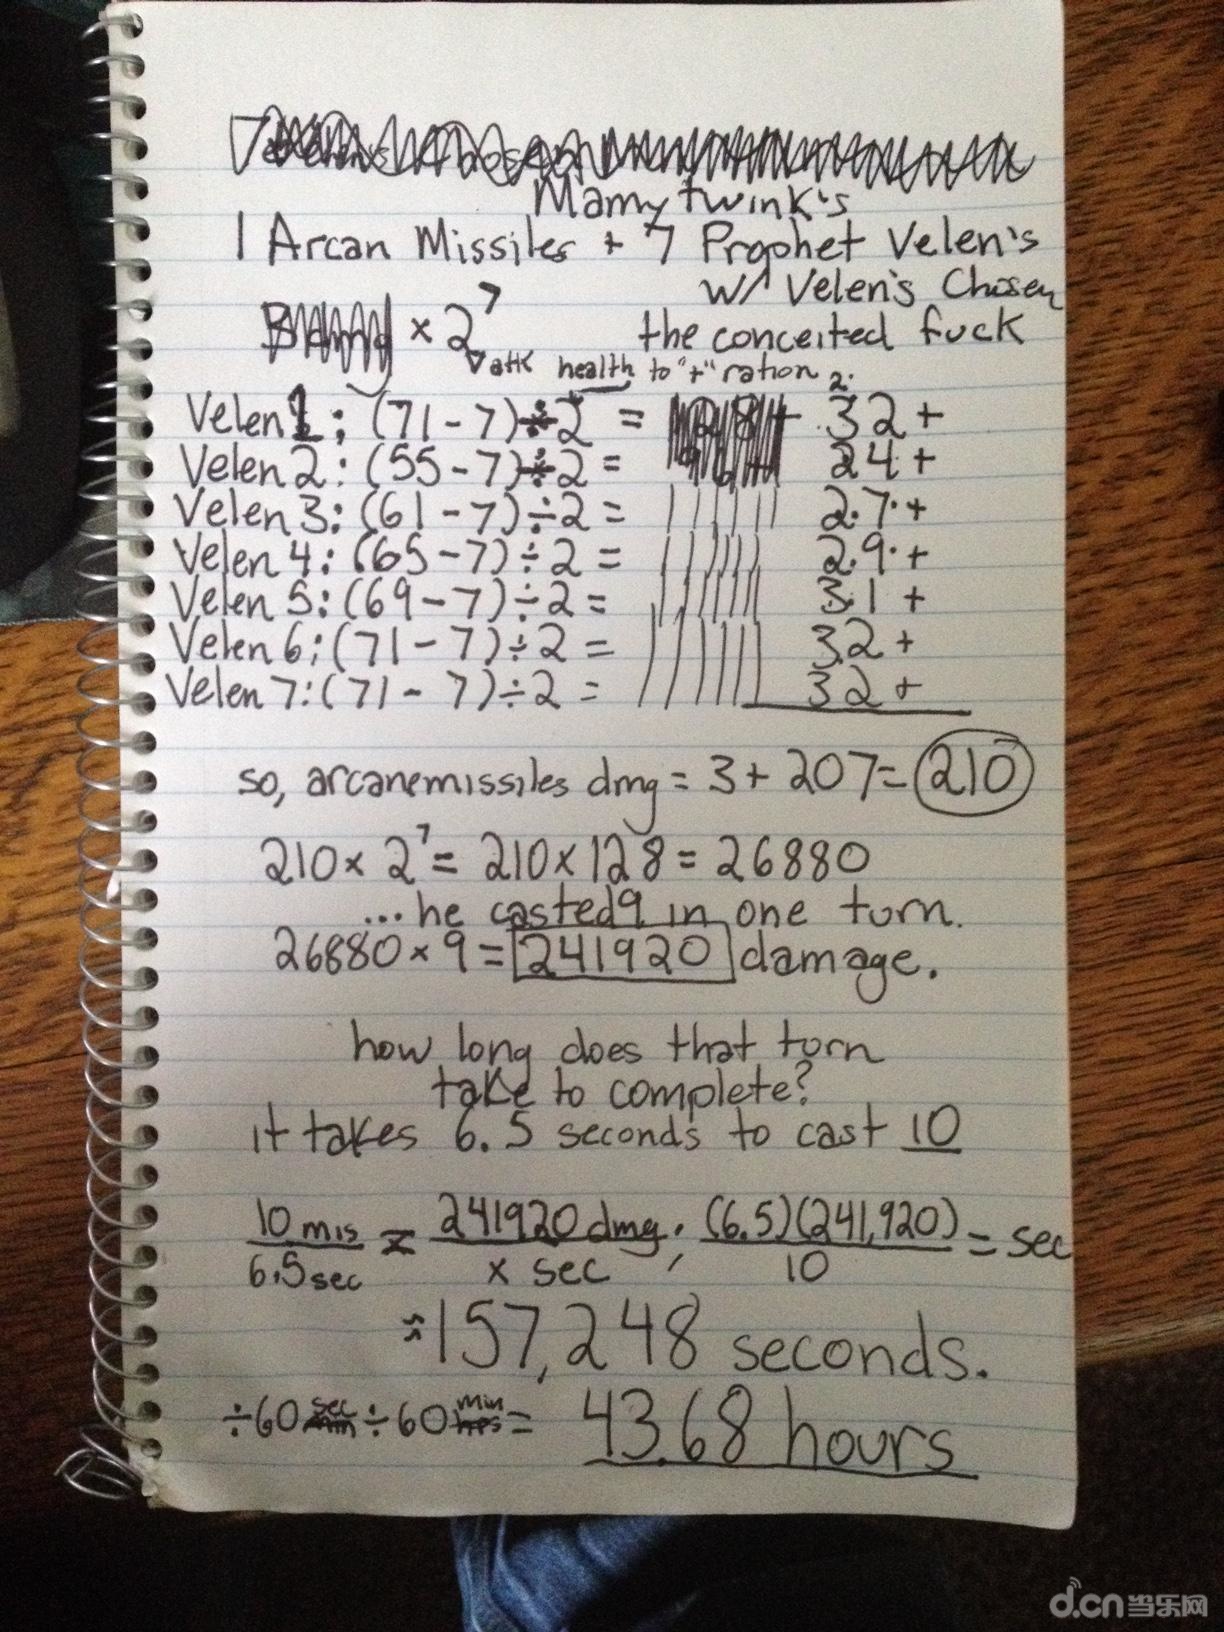 Mamytwink's
1 Arcan Missiles + 7 Prophet Velen's
w/ Velen's Chosen
× 2⁷ the conceited fuck
attk health to "+" ration 2.
Velen 1: (71 - 7) ÷ 2 = 32 +
Velen 2: (55 - 7) ÷ 2 = 24 +
Velen 3: (61 - 7) ÷ 2 = 2.7. +
Velen 4: (65 - 7) ÷ 2 = 2.9. +
Velen 5: (69 - 7) ÷ 2 = 3.1 +
Velen 6: (71 - 7) ÷ 2 = 32 +
Velen 7: (71 - 7) ÷ 2 = 32 +
so, arcanemissiles dmg = 3 + 207 = 210
210 × 2⁷ = 210 × 128 = 26880
... he casted 9 in one turn.
26880 × 9 = 241920 damage.
how long does that turn
take to complete?
it takes 6.5 seconds to cast 10
10 mis / 6.5 sec = 241920 dmg / x sec ; (6.5)(241,920) / 10 = sec
≈ 157,248 seconds.
÷ 60 sec ÷ 60 min = 43.68 hours
d.cn当乐网